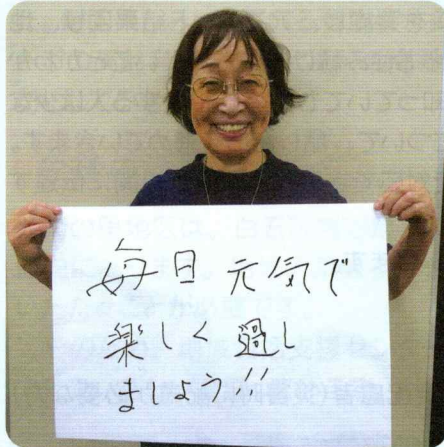 毎日元気で
楽しく過し
ましょう!!